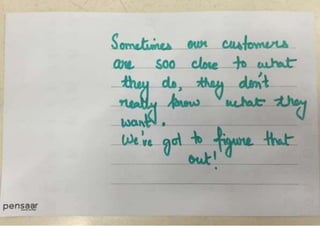 Sometimes our customers
are soo close to what
they do, they don't
really know what they
want.
We've got to figure that
out!
pensaar